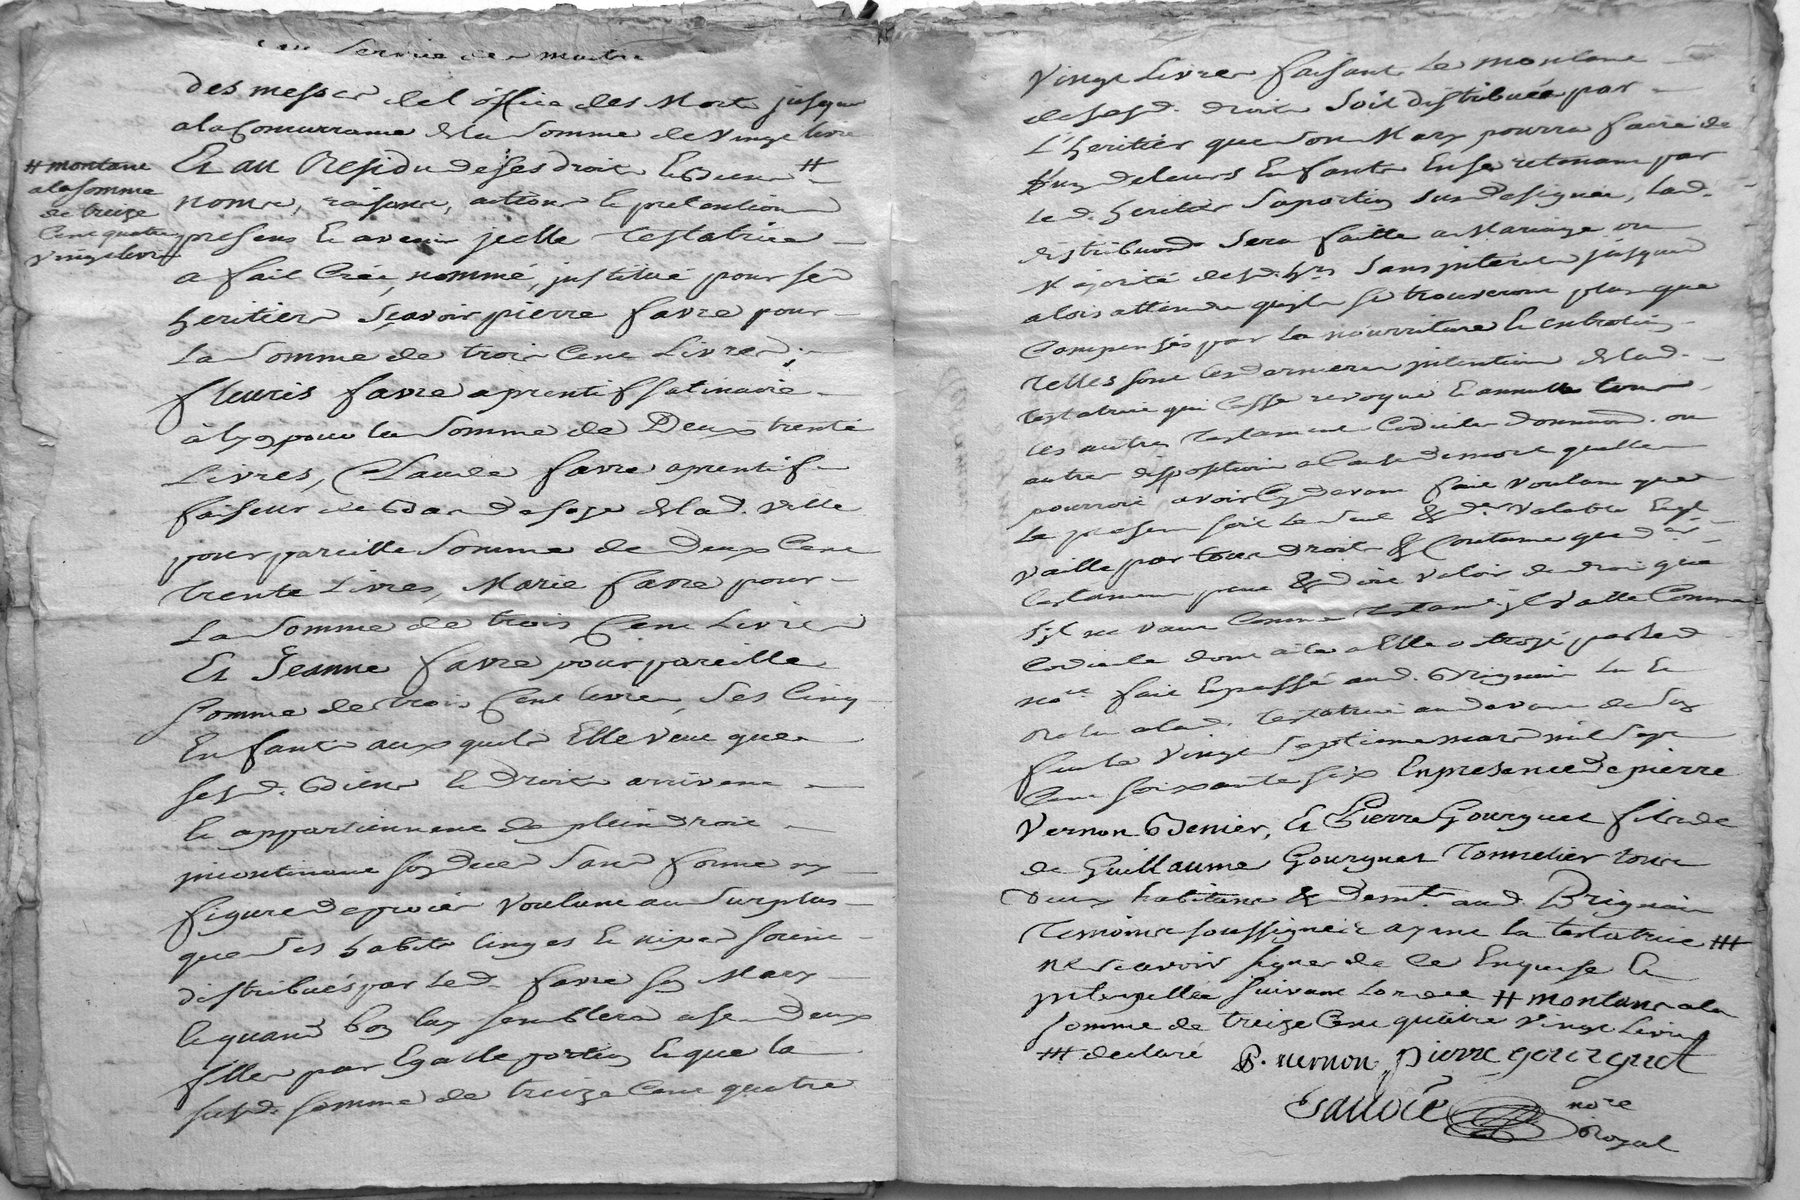 Service de
des messes de l'office des Morts jusque
a la Concurrance de la Somme de vingt livre
Et au Residu de ses droits Et Biens #
noms, raisons, actions Et pretentions
presens Et avenir jcelle Testatrice
a fait Créé, nommé, justitué pour ses
heritiers Sçavoir pierre favre pour
La Somme de trois Cent Livres;
fleuris favre aprentif satinaire
à lyon pour la Somme de Deux trente
Livres, Claude favre aprentif
faiseur de Bas de soye de lad. ville
pour pareille Somme de Deux Cent
trente Livres, Marie favre pour
La Somme de trois Cent Livres
Et Jeanne favre pour pareille
Somme de trois Cent livres, Ses Cinq
Enfants auxquels Elle veut que
sesd. Biens Et droits arrivent
Et appartiennent de plein droit
jncontinant son deces Sans forme ny
figure de procès voulant au Surplus
que ses habits linges Et nipes soient
distribués par led. favre son Mary
Et quand bon luy semblera a ses deux
filles par Egalle portion Et que la
susd. somme de treize Cent quatre
# montant
a la somme
de treize
Cent quatre
vingt livres
vingt Livres faisant le montant
de sesd. droits Soit distribuée par
L'heritier que son Mary pourra faire de
l'un de leurs Enfants En se retenant par
led. heritier Sa portion Sus designée, Lad.
distribution Sera faitte a Mariage ou
Majorité desd. hrs Sans jnterets jusques
alors attendu qu'ils se trouveront plus que
Compensés par la nourriture Et entretien
Telles sont les dernieres jntentions de lad.
Testatrice qui Casse revoque Et annulle tous
les autres Testament Codicile donnation ou
autres disposition a Cause de mort qu'elle
pourroit avoir Cy devant fait voulant que
Le present soit le Seul & der valable Et qu'il
vaille par tous droits & Coutume que
testament peut & doit valoir de droit que
S'il ne vaut Comme Testamt. jl valle Comme
Codicile dont acte a Elle octroyé par led
nore. fait Et passé aud. Brignais lu Et
a lad. Testatrice audevant de Son
le vingt Septieme mars mil Sept
Cent soixante six En presence de pierre
Vernon Benier, Et Pierre Gourguet fils de
de Guillaume Gourguet Tonnelier tous
deux habitans & demt. aud. Brignais
Temoins soussignés ayant la testatrice ###
ne Scavoir signer de Ce Enquise Et
jnterpellée suivant L'ordce # montant a la
somme de treize Cent quatre vingt Livres
### declaré P. vernon pierre gourguet
nore
Royal